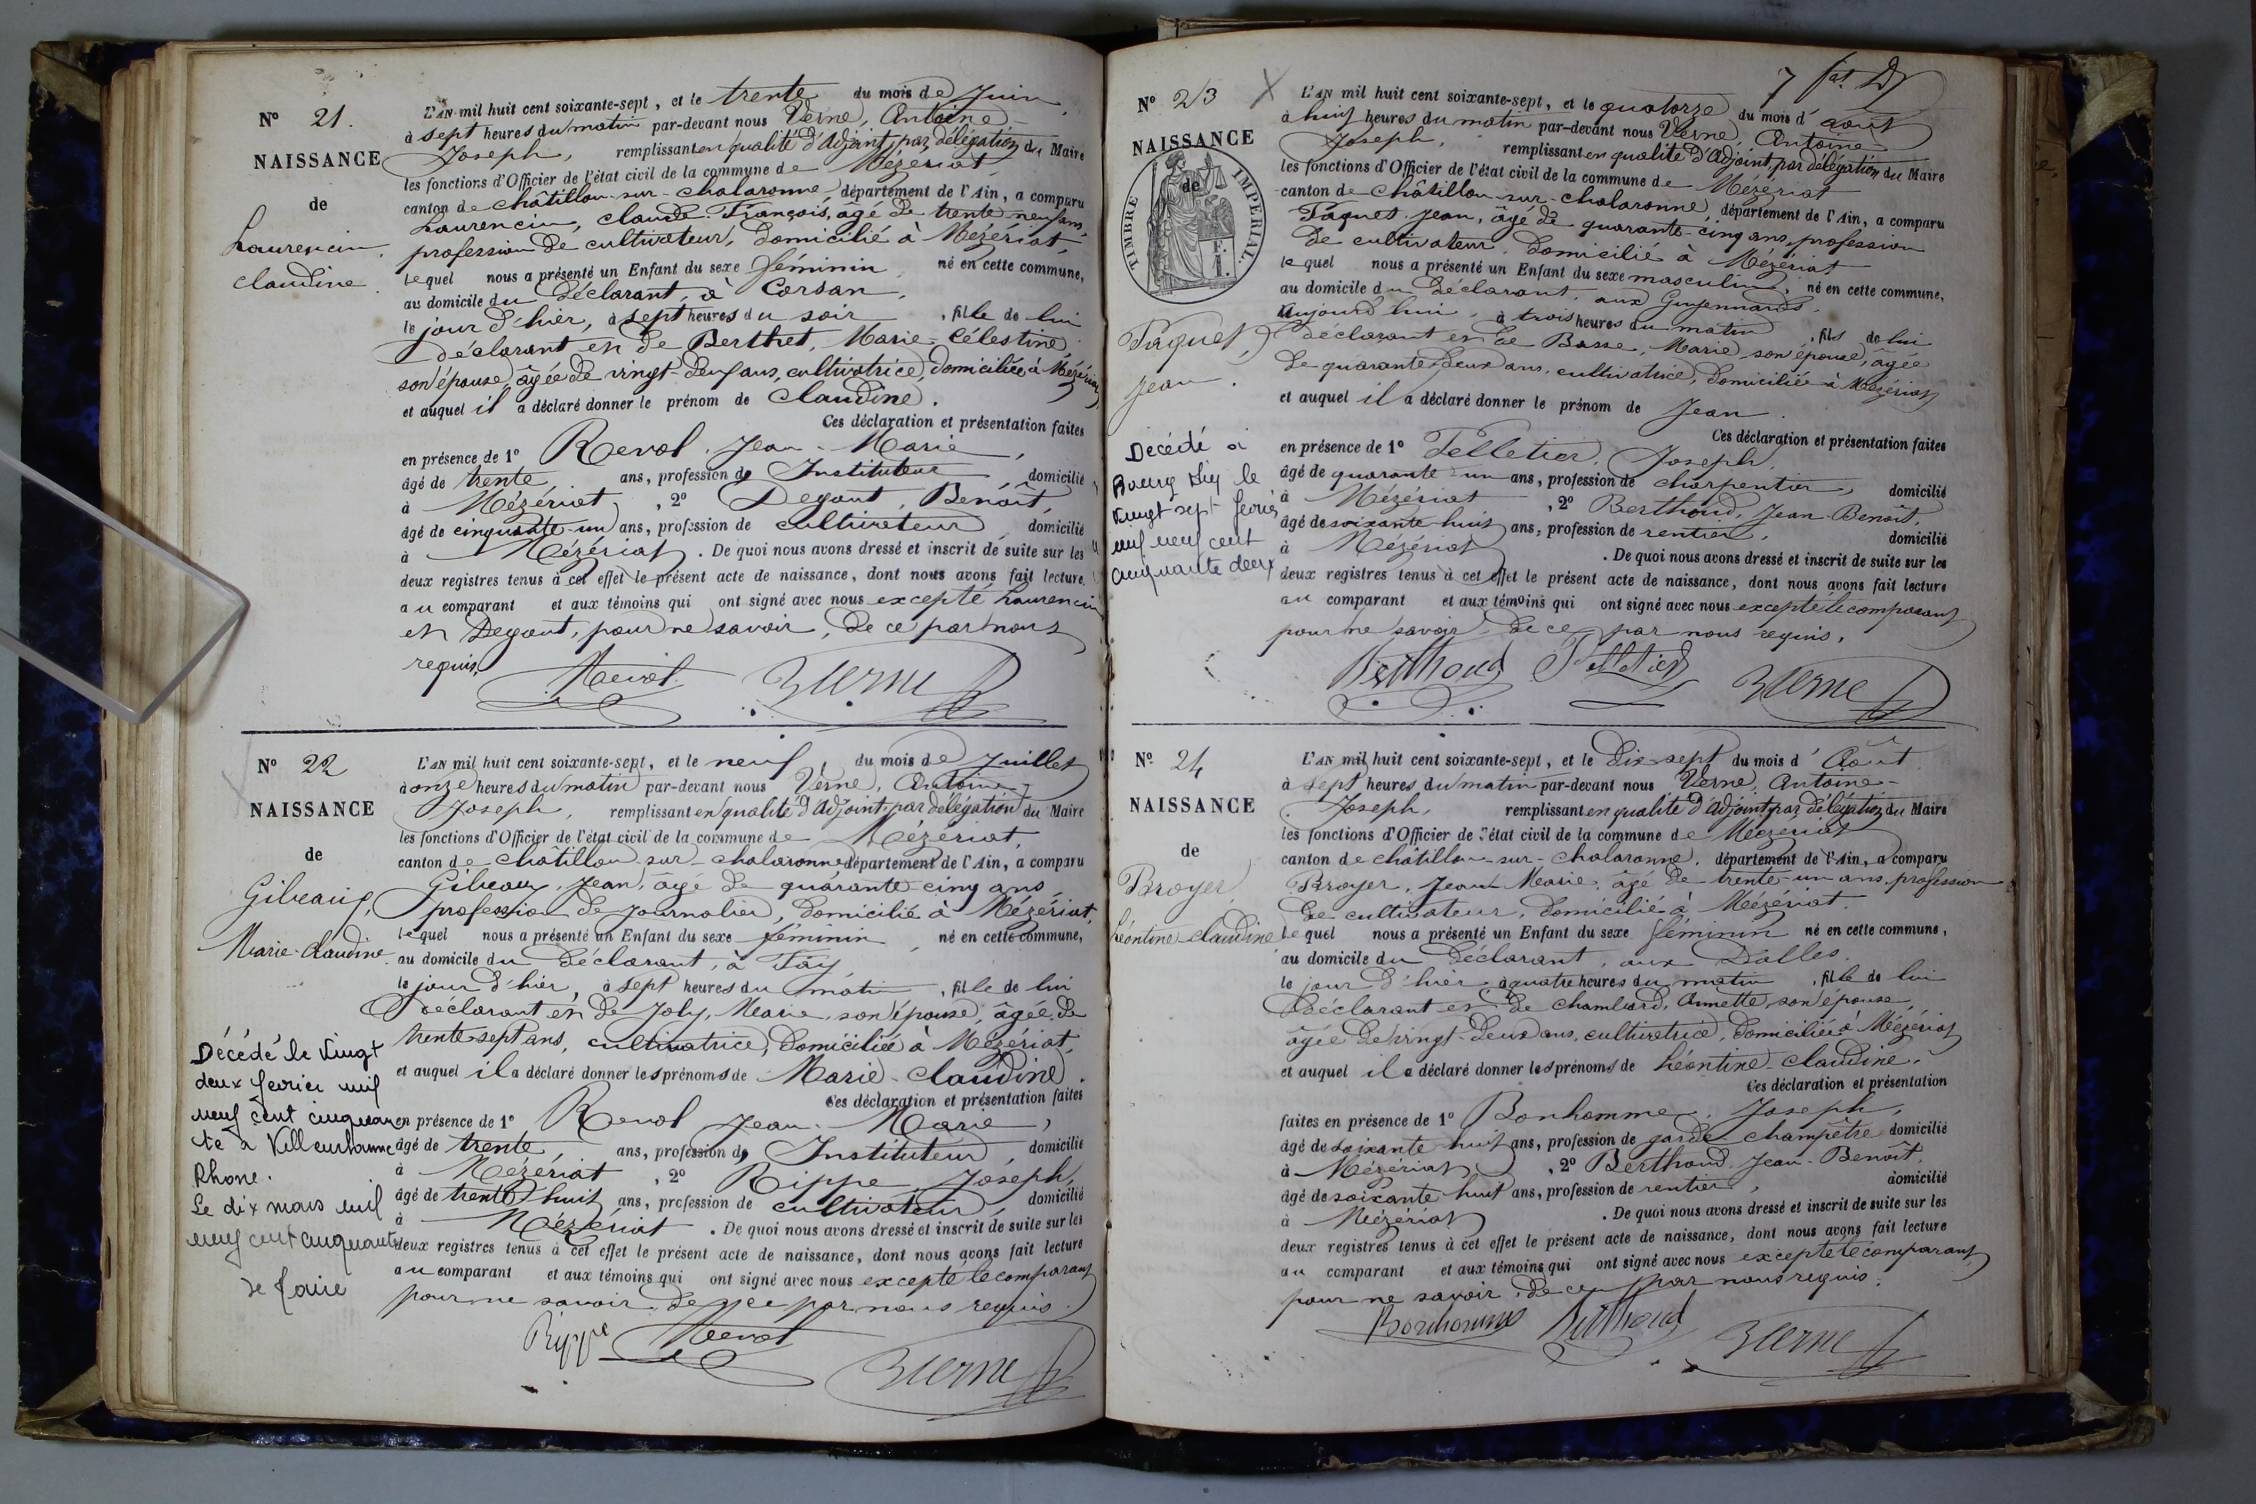 N° 21.
NAISSANCE
de
Laurencin,
Claudine.
L'AN mil huit cent soixante-sept, et le trente du mois de Juin,
à sept heures du matin par-devant nous Verne, Antoine-
Joseph, remplissant en qualité d'Adjoint, par délégation du Maire
les fonctions d'Officier de l'état civil de la commune de Mézériat,
canton de Châtillon-sur-Chalaronne, département de l'Ain, a comparu
Laurencin, Claude-François, âgé de trente-neuf ans,
profession de cultivateur, domicilié à Mézériat
lequel nous a présenté un Enfant du sexe féminin, né en cette commune,
au domicile du déclarant, à Corsan,
le jour d'hier, à sept heures du soir, fille de lui
déclarant et de Berthet, Marie-Célestine,
son épouse, âgée de vingt-deux ans, cultivatrice, domiciliée à Mézériat,
et auquel il a déclaré donner le prénom de Claudine.
Ces déclaration et présentation faites
en présence de 1° Revol, Jean-Marie,
âgé de trente ans, profession de Instituteur, domicilié
à Mézériat, 2° Degout, Benoît,
âgé de cinquante-un ans, profession de cultivateur, domicilié
à Mézériat. De quoi nous avons dressé et inscrit de suite sur les
deux registres tenus à cet effet le présent acte de naissance, dont nous avons fait lecture
au comparant et aux témoins qui ont signé avec nous excepté Laurencin
et Degout, pour ne savoir, de ce par nous
requis.
Revol Verne
N° 22
NAISSANCE
de
Gibeaux,
Marie-Claudine.
Décédé le vingt
deux fevrier mil
neuf cent cinquan
te à Villeurbanne
Rhone.
Le dix mars mil
neuf cent cinquante
L'AN mil huit cent soixante-sept, et le neuf, du mois de Juillet
à onze heures du matin par-devant nous Verne, Antoine-
Joseph, remplissant en qualité d'Adjoint, par délégation du Maire
les fonctions d'Officier de l'état civil de la commune de Mézériat,
canton de Châtillon-sur-Chalaronne département de l'Ain, a comparu
Gibeaux, Jean, âgé de quarante-cinq ans,
profession de journalier, domicilié à Mézériat,
lequel nous a présenté un Enfant du sexe féminin, né en cette commune,
au domicile du déclarant, à Fay,
le jour d'hier, à sept heures du matin, fille de lui
déclarant et de Joly, Marie, son épouse, âgée de
trente-sept ans, cultivatrice, domiciliée à Mézériat,
et auquel il a déclaré donner les prénoms de Marie-Claudine.
Ces déclaration et présentation faites
en présence de 1° Revol Jean-Marie,
âgé de trente, ans, profession de Instituteur, domicilié
à Mézériat, 2° Rippe, Joseph,
âgé de trente huit ans, profession de cultivateur, domicilié
à Mézériat. De quoi nous avons dressé et inscrit de suite sur les
deux registres tenus à cet effet le présent acte de naissance, dont nous avons fait lecture
au comparant et aux témoins qui ont signé avec nous excepté le comparant
pour ne savoir, de ce par nous requis.
Rippe Revol Verne
N° 23
NAISSANCE
de
TIMBRE IMPERIAL.
1 F.
Paquet,
Jean.
Décédé à
Bourg le
vingt sept fevrier
mil neuf cent
cinquante deux
L'AN mil huit cent soixante-sept, et le quatorze du mois d'août
à huit heures du matin par-devant nous Verne, Antoine
Joseph, remplissant en qualité d'Adjoint, par délégation du Maire
les fonctions d'Officier de l'état civil de la commune de Mézériat
canton de Châtillon-sur-Chalaronne, département de l'Ain, a comparu
Paquet, Jean, âgé de quarante-cinq ans, profession
de cultivateur, domicilié à Mézériat
lequel nous a présenté un Enfant du sexe masculin, né en cette commune,
au domicile du déclarant, aux Guyennards,
aujourd'hui, à trois heures du matin, fils de lui
déclarant et de Basse, Marie son épouse, âgée
de quarante-deux ans, cultivatrice, domiciliée à Mézériat
et auquel il a déclaré donner le prénom de Jean.
Ces déclaration et présentation faites
en présence de 1° Pelletier, Joseph,
âgé de quarante-un ans, profession de charpentier, domicilié
à Mézériat, 2° Berthoud, Jean-Benoît,
âgé de soixante-huit ans, profession de rentier, domicilié
à Mézériat. De quoi nous avons dressé et inscrit de suite sur les
deux registres tenus à cet effet le présent acte de naissance, dont nous avons fait lecture
au comparant et aux témoins qui ont signé avec nous excepté le comparant
pour ne savoir de ce par nous requis.
Berthoud Pelletier Verne
N° 24
NAISSANCE
de
Broyer,
Léontine-Claudine.
L'AN mil huit cent soixante-sept, et le dix-sept du mois d'Août
à sept heures du matin par-devant nous Verne, Antoine-
Joseph, remplissant en qualité d'Adjoint, par délégation du Maire
les fonctions d'Officier de l'état civil de la commune de Mézériat
canton de Châtillon-sur-Chalaronne, département de l'Ain, a comparu
Broyer, Jean Marie, âgé de trente-un ans, profession
de cultivateur, domicilié à Mézériat.
lequel nous a présenté un Enfant du sexe féminin né en cette commune,
au domicile du déclarant, aux Dalles.
le jour d'hier, à quatre heures du matin, fille de lui
déclarant et de Chambard, Annette, son épouse,
âgée de vingt-deux ans, cultivatrice, domiciliée à Mézériat
et auquel il a déclaré donner les prénoms de Léontine-Claudine.
Ces déclaration et présentation
faites en présence de 1° Bonhomme, Joseph,
âgé de soixante-huit ans, profession de garde-champêtre domicilié
à Mézériat, 2° Berthoud, Jean-Benoît,
âgé de soixante huit ans, profession de rentier, domicilié
à Mézériat. De quoi nous avons dressé et inscrit de suite sur les
deux registres tenus à cet effet le présent acte de naissance, dont nous avons fait lecture
au comparant et aux témoins qui ont signé avec nous excepté le comparant,
pour ne savoir, de ce par nous requis.
Bonhomme Berthoud Verne